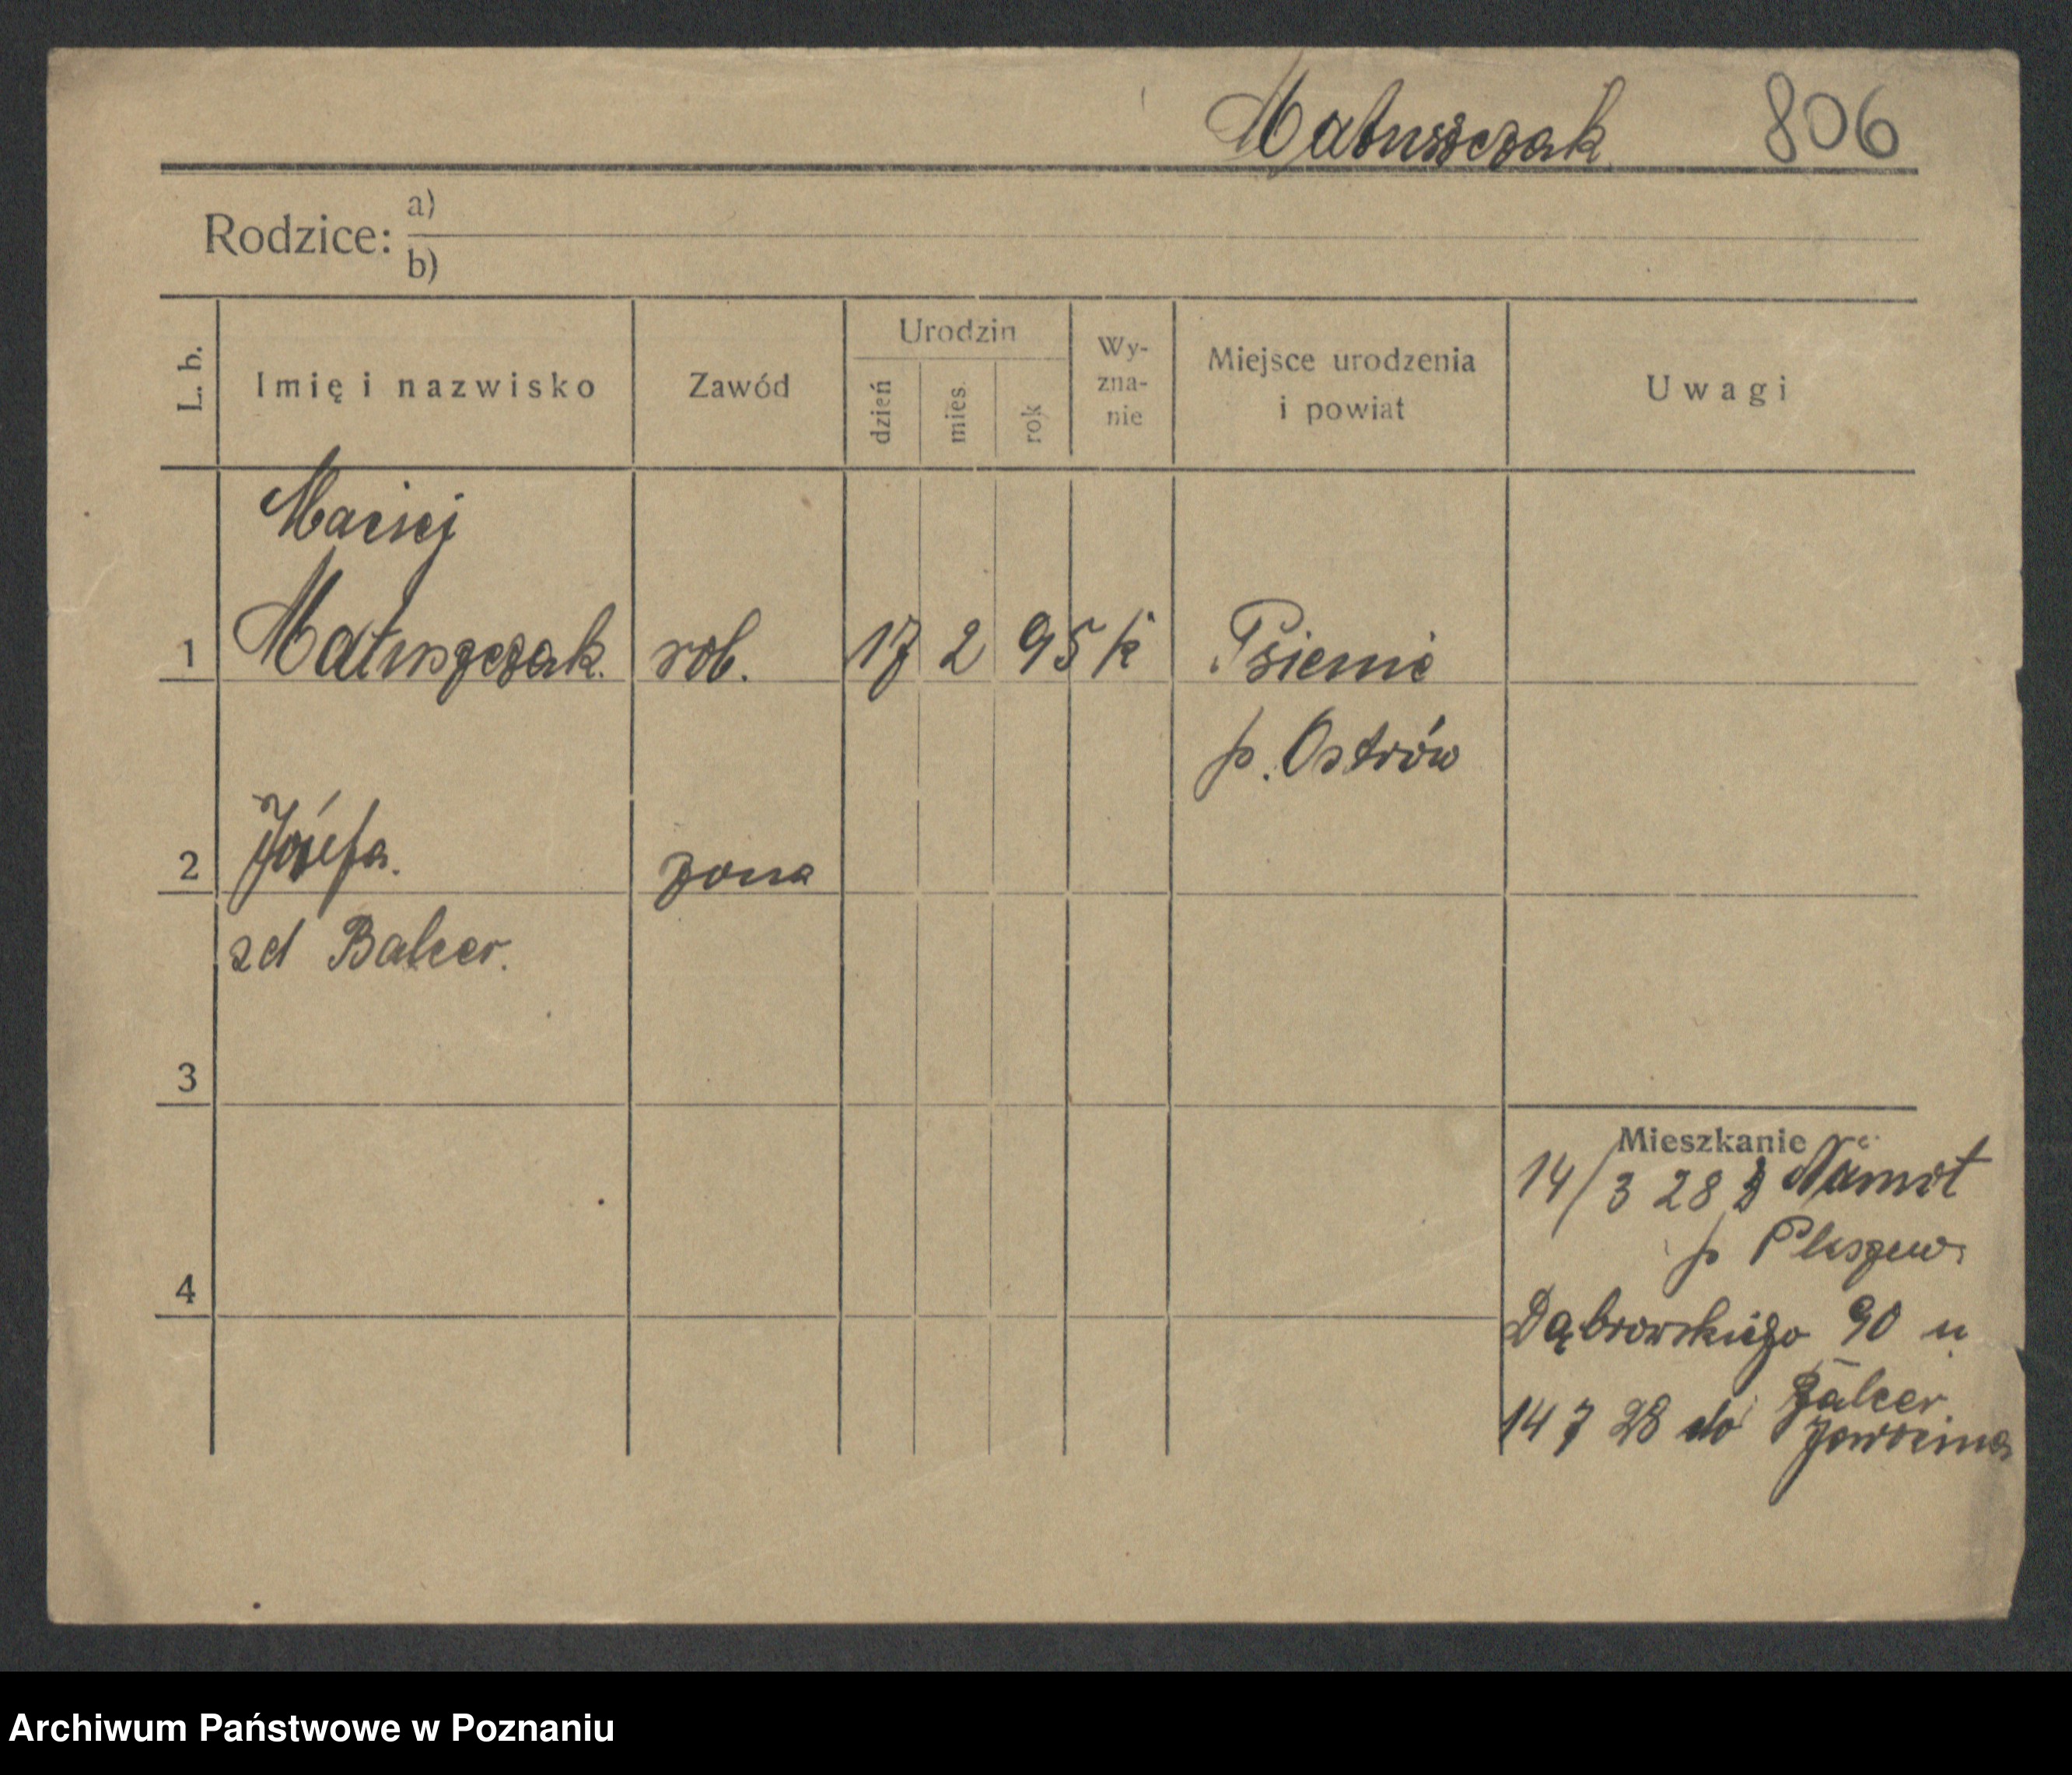 Matuszczak 806
Rodzice: a)
b)
L. b.
Imię i nazwisko
Zawód
Urodzin
dzień
mies.
rok
Wy-
zna-
nie
Miejsce urodzenia
i powiat
Uwagi
Maciej
1 Matuszczak. rob. 17 2 95 k
Psienie
p. Ostrów
2 Józefa. żona
zd Balcer.
3
4
Mieszkanie
14/3 28 z
p Pleszew.
Dąbrowskiego 90 u
Balcer
14 7 28 do Jarocina
Archiwum Państwowe w Poznaniu